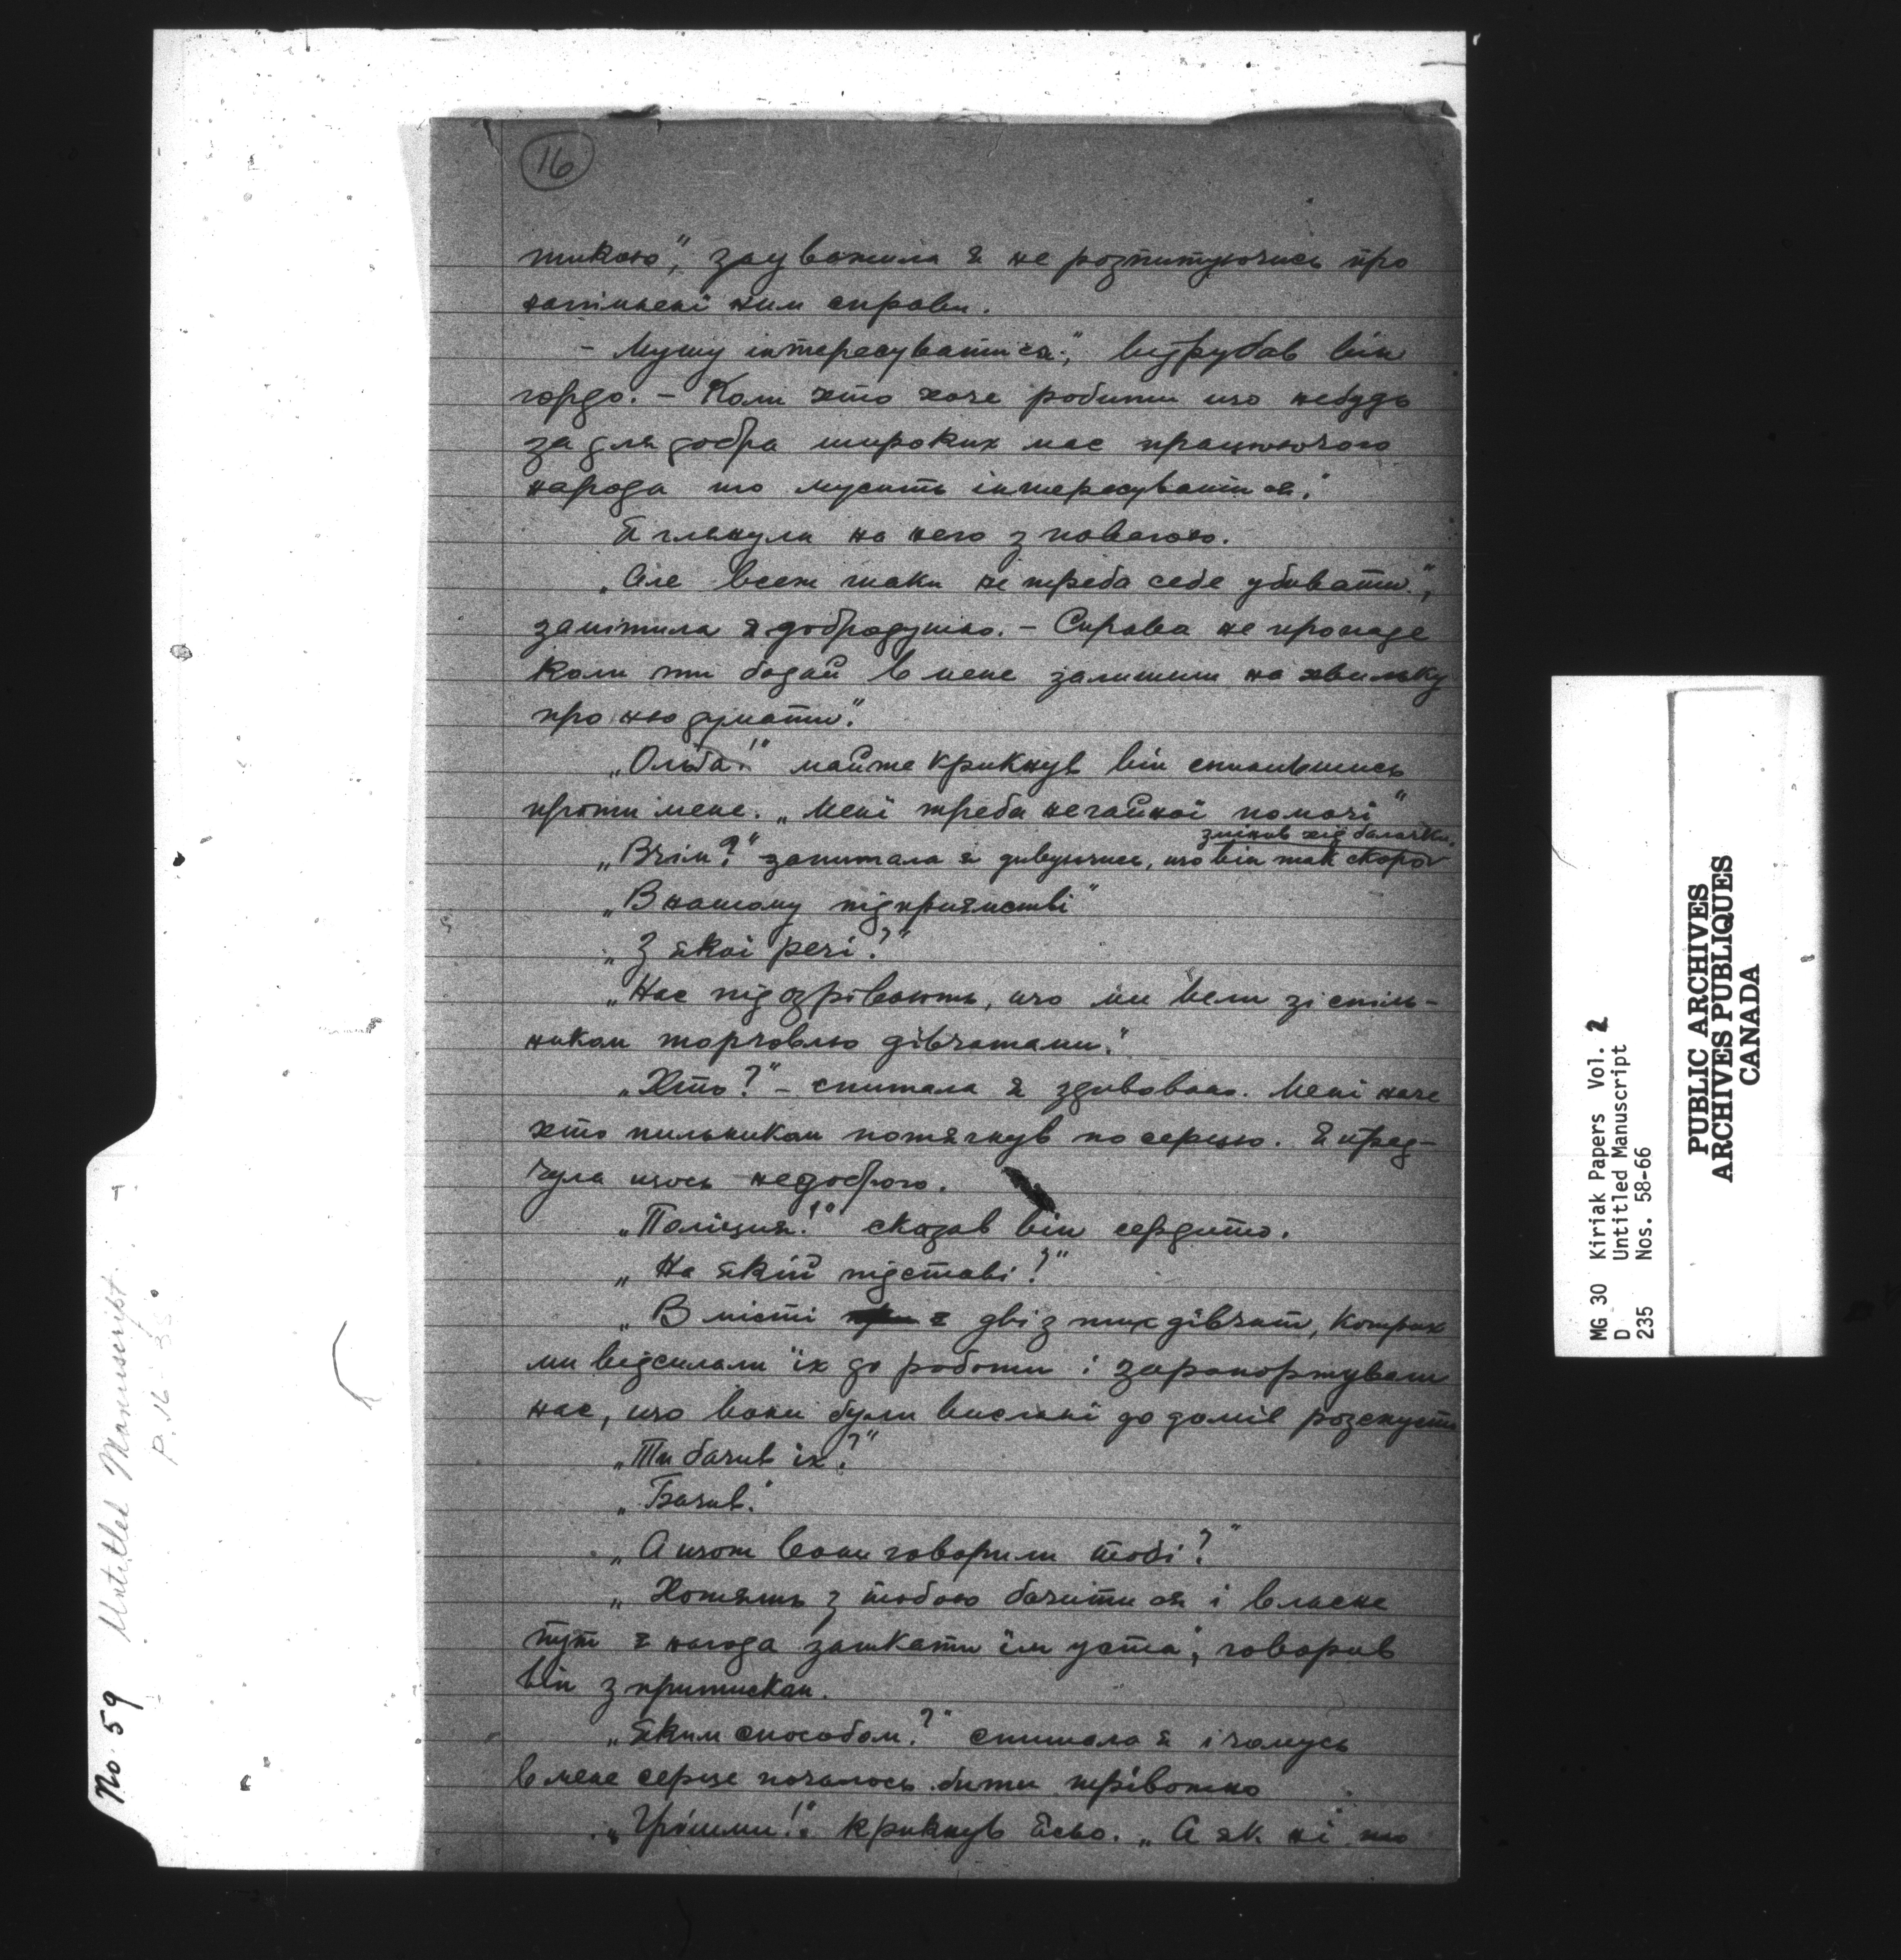 16
тикою", зауважила я не розпитуючись про
натільнені ним справи.
- Мушу інтересуватися;" відрубав він
гордо. - Коли хто хоче робити що небудь
за для добра широких мас працюючого
народа то мусить інтересуватися."
Я глянула на него з повагою.
„Але всеж таки не треба себе убивати.",
замітила я добродушно. - Справа не пропаде
коли ти бодай в мене залишиш на хвильку
про ню думати."
„Ольга!" майже крикнув він спинившись
проти мене. „Мені треба негайної помочі"
змінив хід балачки.
„Вчім?" запитала я дивуючись, що він так скоро
„В нашому підприємстві"
„З якої речі?"
„Нас підозрівають, що ми вели зі спіль-
ником торговлю дівчатами."
„Хто?" - спитала я здивовано. Мені наче
хто пильником потягнув по серцю. Я пред-
чула щось недоброго.
„Поліция!" сказав він сердито.
„На якій підставі?"
„В місті є дві з тих дівчат, котрих
ми відсилали їх до роботи і зарапортували
нас, що вони були вислані до домів розпусти
„Ти бачив їх?"
„Бачив."
„А щож вони говорили тобі?"
„Хотять з тобою бачитися і власне
тут є нагода заткати їм уста", говорив
він з притиском.
„Яким способом?" спитала я і чомусь
в мене серце почалось бити трівожно
„Грішми!" крикнув Ясьо. „А як ні то
No. 59 Untitled Manuscript
P. 16
MG 30 Kiriak Papers Vol. 2
D Untitled Manuscript
235 Nos. 58-66
PUBLIC ARCHIVES
ARCHIVES PUBLIQUES
CANADA